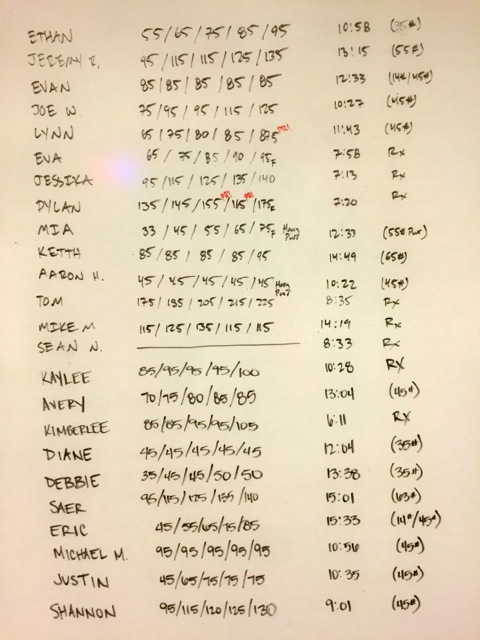 ETHAN 55/65/75/85/95 10:58 (35#)
JEREMY R. 95/115/115/125/135 13:15 (55#)
EVAN 85/85/85/85/85 12:33 (14#/45#)
JOE W. 75/95/95/115/125 10:27 (45#)
LYNN 65/75/80/85/87.5 PR! 11:43 (45#)
EVA 65/75/85/90/95F 7:58 Rx
JESSIKA 95/115/125/135/140 7:13 Rx
DYLAN 135/145/155 PR!/165 PR!/175F 7:20 Rx
MIA 33/45/55/65/75F Hang Pwr 12:37 (55# Pwr)
KEITH 85/85/85/85/95 14:49 (65#)
AARON H. 45/45/45/45/45 Hang Pwr 10:22 (45#)
TOM 175/195/205/215/225 8:35 Rx
MIKE M 115/125/135/115/115 14:19 Rx
SEAN N. 8:33 Rx
KAYLEE 85/95/95/95/100 10:28 RX
AVERY 70/75/80/85/85 13:04 (45#)
KIMBERLEE 85/85/95/95/105 6:11 RX
DIANE 45/45/45/45/45 12:04 (35#)
DEBBIE 35/45/45/50/50 13:38 (35#)
SAER 95/115/125/135/140 15:01 (63#)
ERIC 45/55/65/75/85 15:33 (14#/45#)
MICHAEL M. 95/95/95/95/95 10:56 (45#)
JUSTIN 45/65/75/75/75 10:35 (45#)
SHANNON 95/115/120/125/130 9:01 (45#)